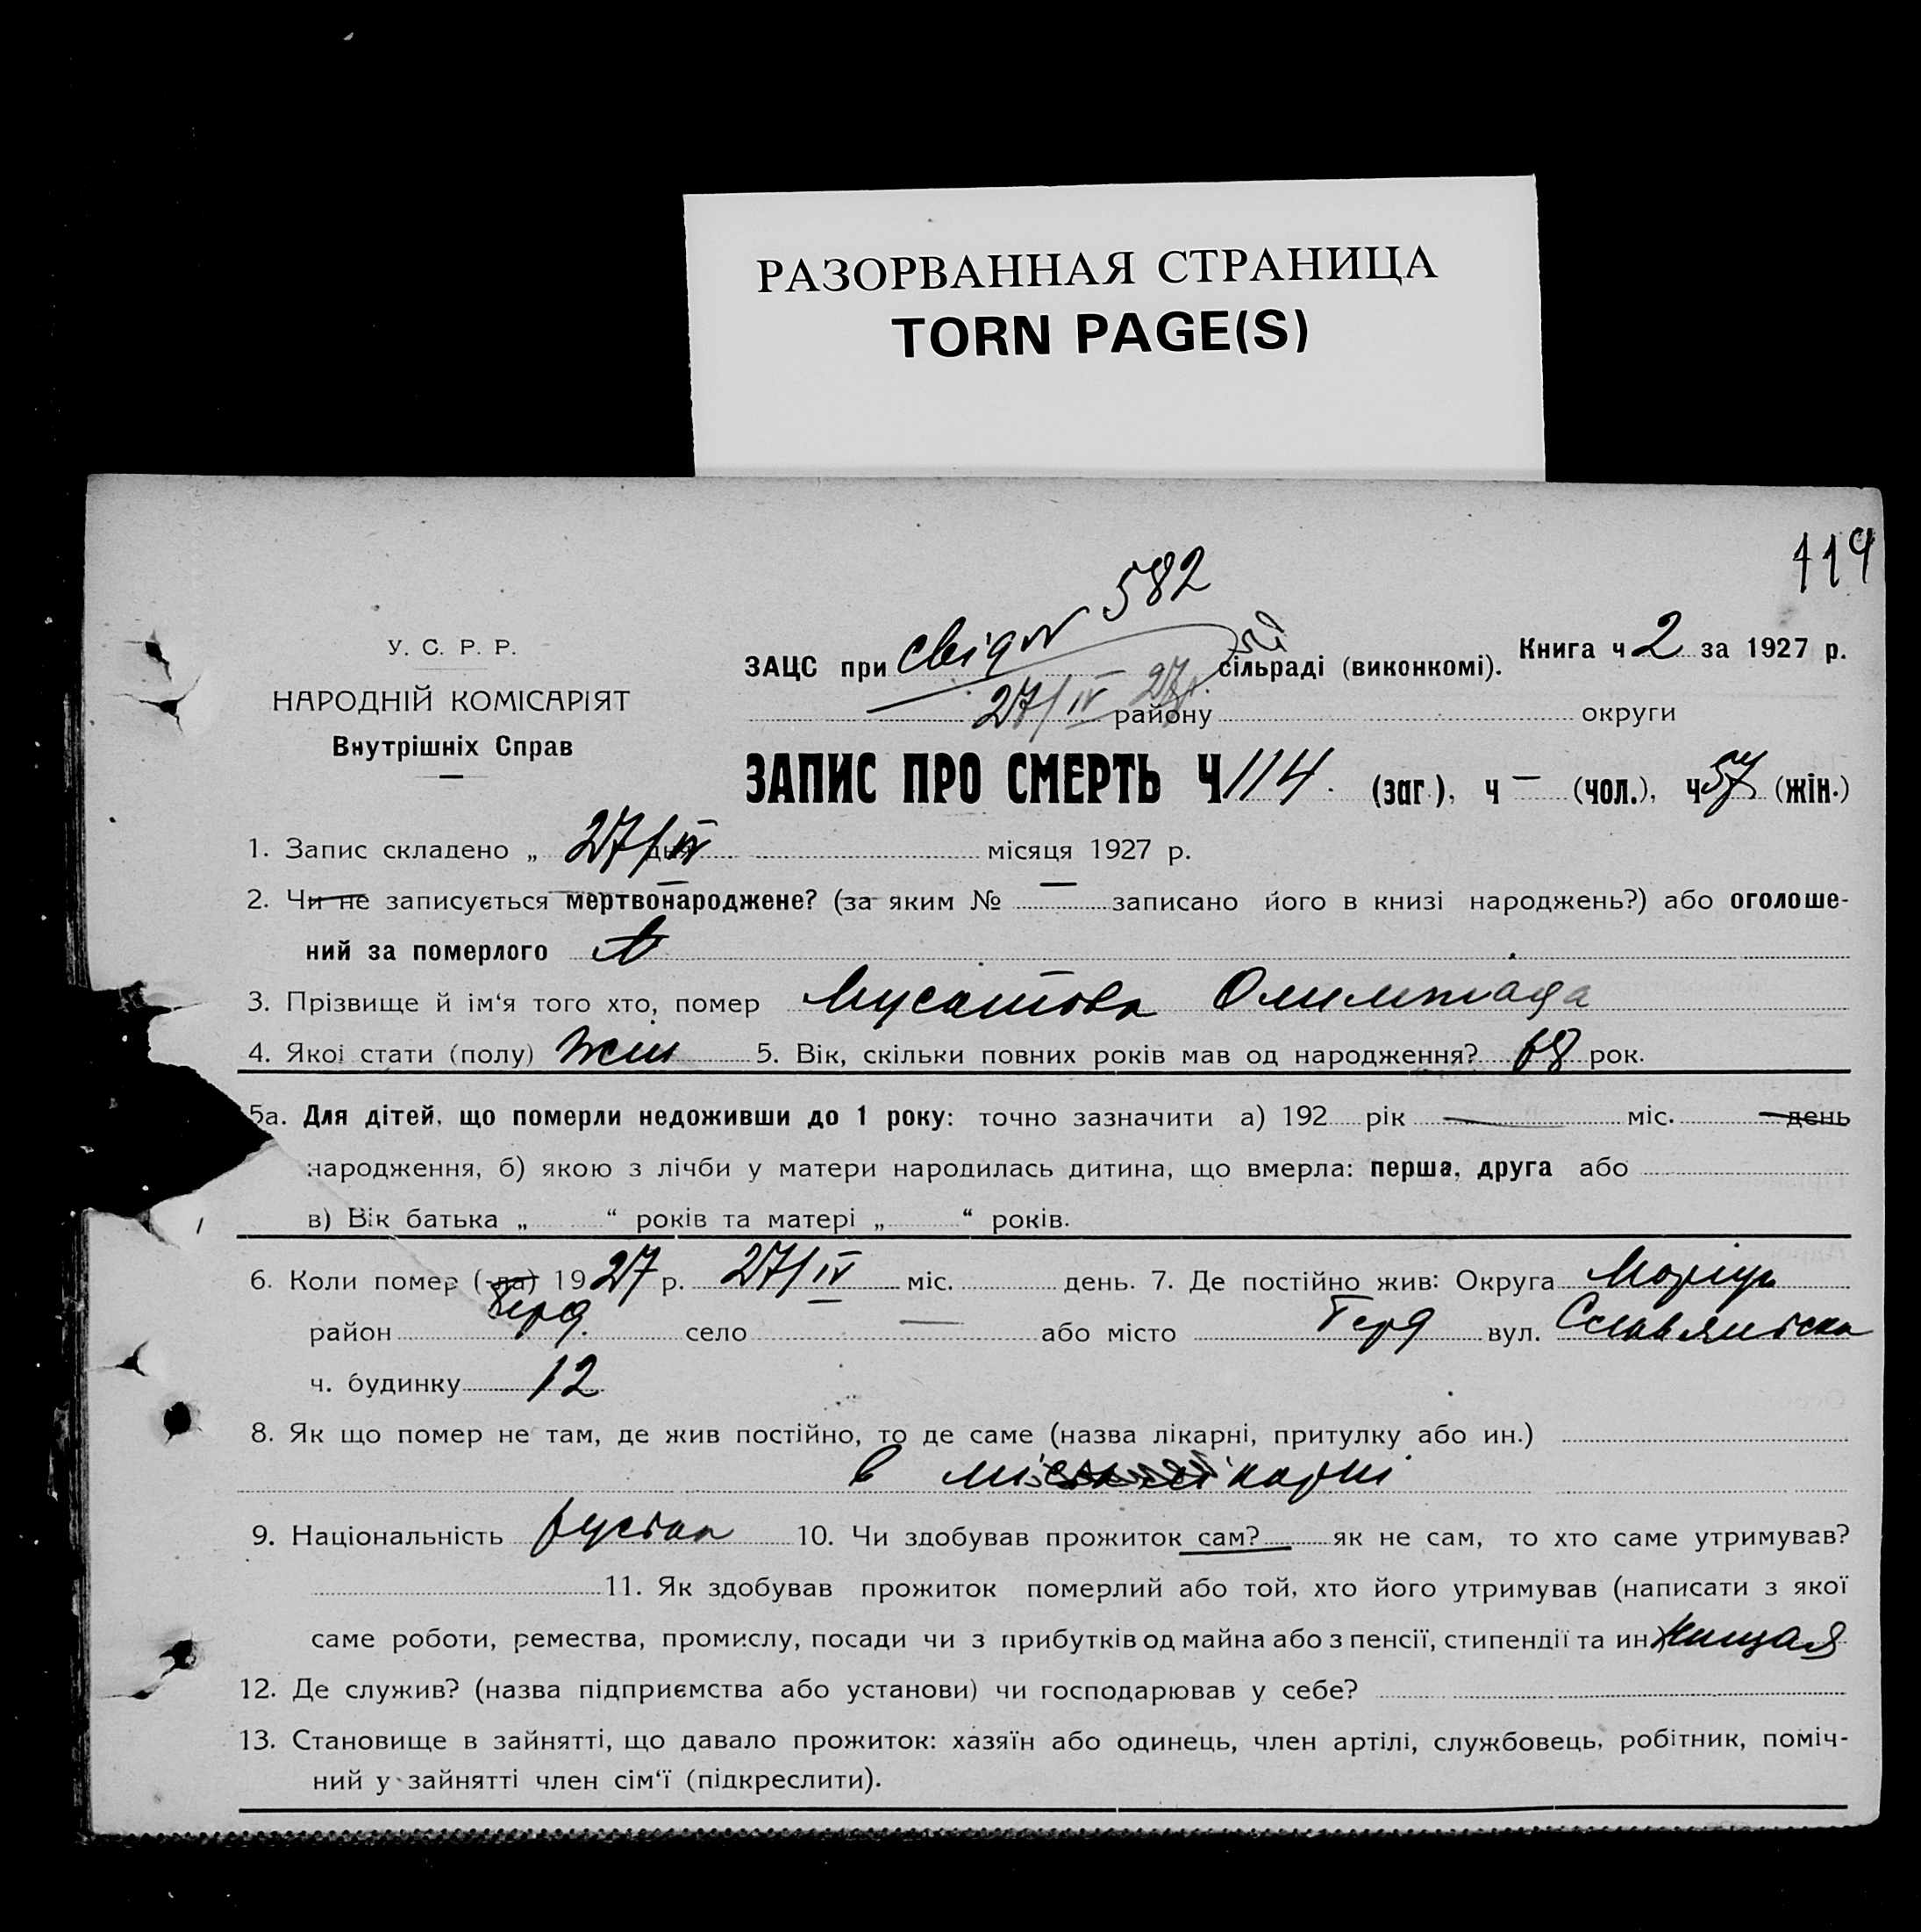 РАЗОРВАННАЯ СТРАНИЦА
TORN PAGE(S)
119
582
У. С. Р. Р.
НАРОДНІЙ КОМІСАРІЯТ
Внутрішніх Справ
ЗАЦС при свід N сільраді (виконкомі). Книга ч 2 за 1927 р.
27/IV 27 р. району округи
ЗАПИС ПРО СМЕРТЬ Ч 114. (заг.), ч — (чол.), ч 57 (жін.)
1. Запис складено „ 27/IV дня місяця 1927 р.
2. Чи не записується мертвонароджене? (за яким № — записано його в книзі народжень?) або оголоше-
ний за померлого
3. Прізвище й ім‘я того хто, помер Мусатова Олимпиада
4. Якої стати (полу) жін 5. Вік, скільки повних років мав од народження? 68 рок.
5а. Для дітей, що померли недоживши до 1 року: точно зазначити а) 192 рік — міс. день
народження, б) якою з лічби у матери народилась дитина, що вмерла: перша, друга або
в) Вік батька „ “ років та матері „ “ років.
6. Коли помер (-ла) 1927 р. 27/IV міс. день. 7. Де постійно жив: Округа Маріуп
район Берд. село — або місто Берд вул. Славянська
ч. будинку 12
8. Як що помер не там, де жив постійно, то де саме (назва лікарні, притулку або ин.)
в лікарні
9. Національність руська 10. Чи здобував прожиток сам? як не сам, то хто саме утримував?
11. Як здобував прожиток померлий або той, хто його утримував (написати з якої
саме роботи, ремества, промислу, посади чи з прибутків од майна або з пенсії, стипендії та ин. нищая
12. Де служив? (назва підприємства або установи) чи господарював у себе?
13. Становище в зайнятті, що давало прожиток: хазяїн або одинець, член артілі, службовець, робітник, поміч-
ний у зайнятті член сім‘ї (підкреслити).